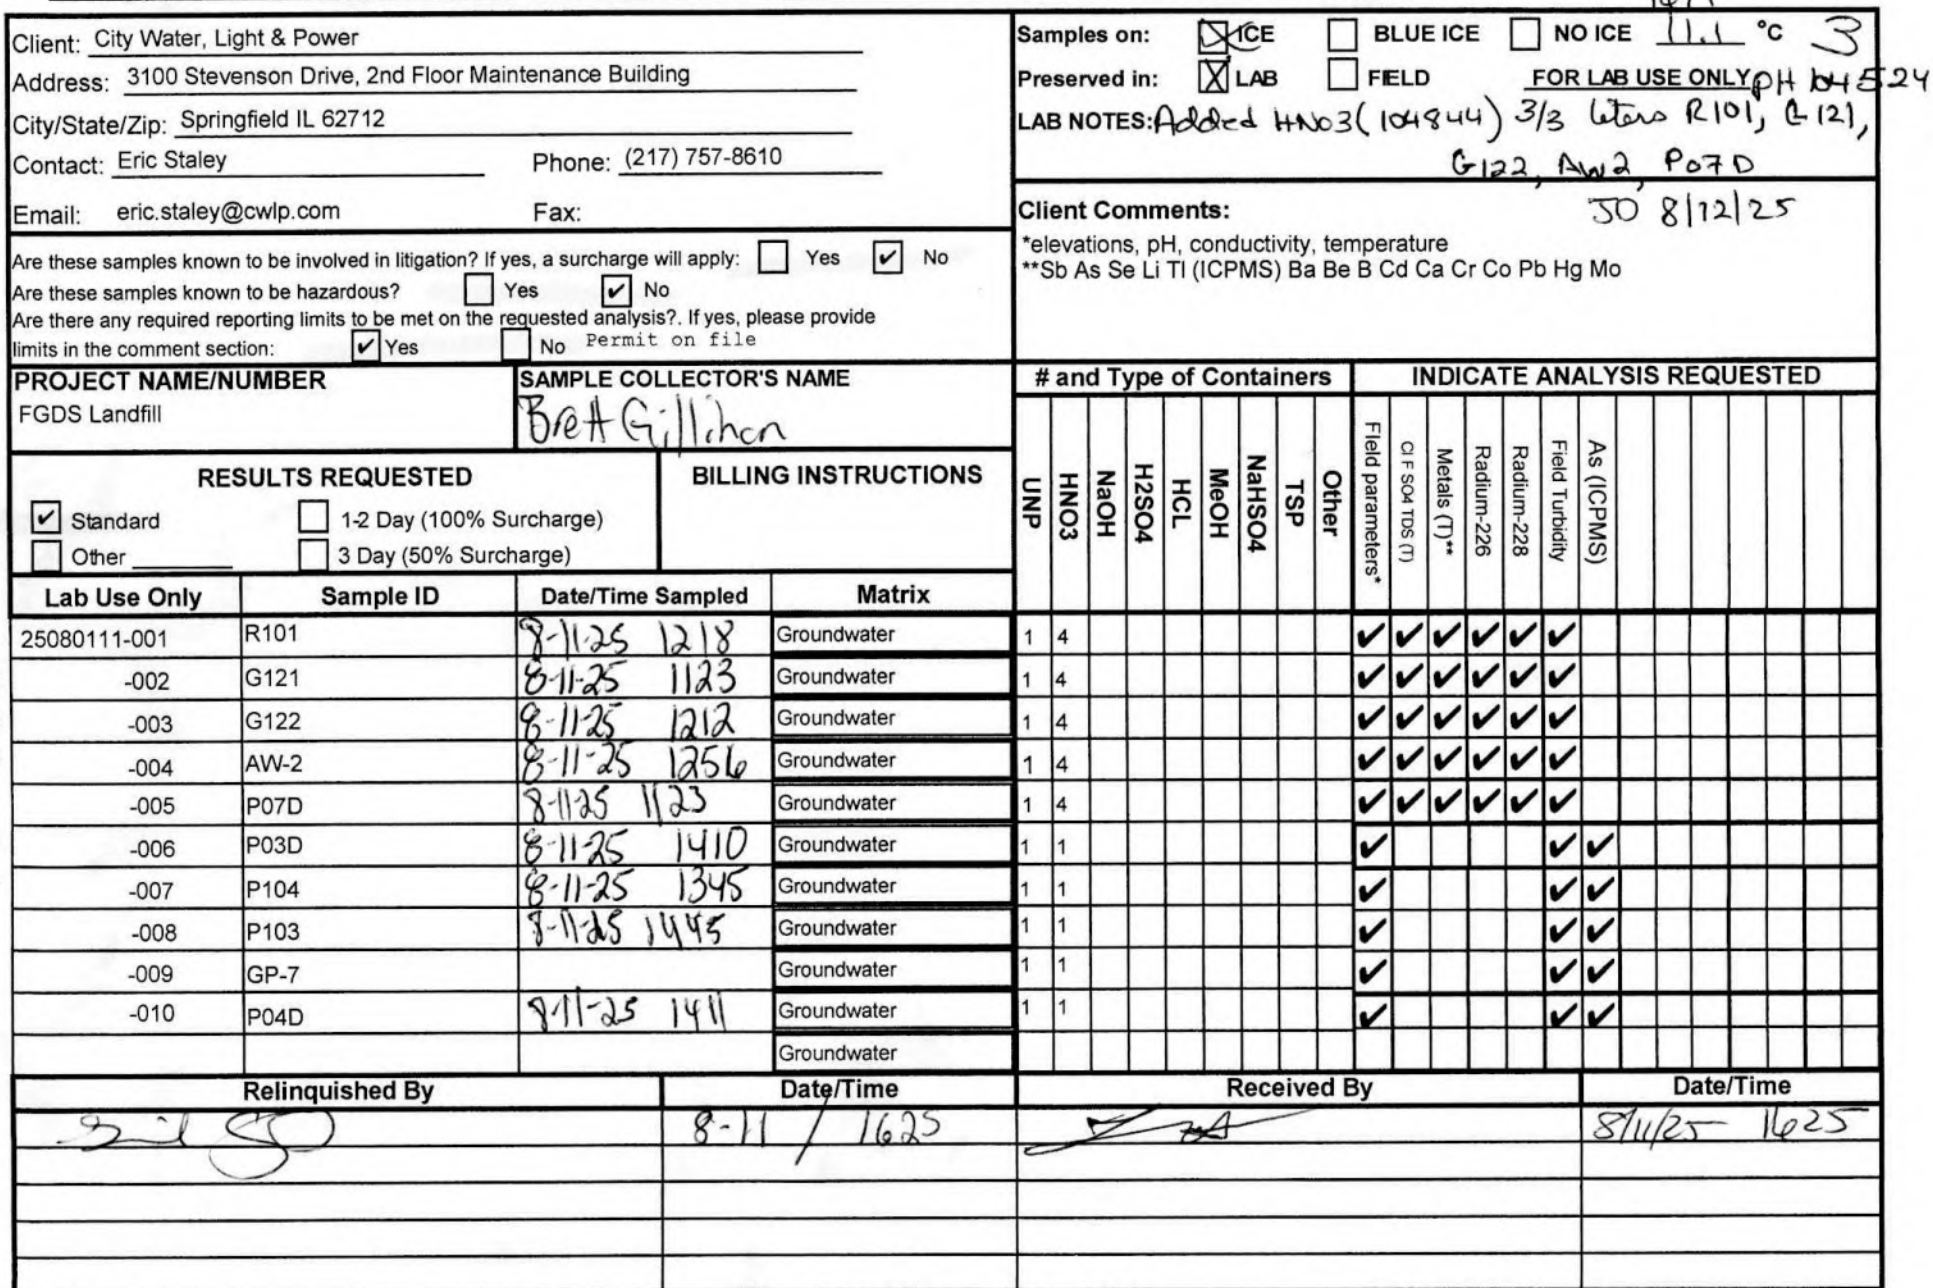 Client: City Water, Light & Power
Address: 3100 Stevenson Drive, 2nd Floor Maintenance Building
City/State/Zip: Springfield IL 62712
Contact: Eric Staley Phone: (217) 757-8610
Email: eric.staley@cwlp.com Fax:
Samples on: ICE BLUE ICE NO ICE 11.1 °C 3
Preserved in: LAB FIELD FOR LAB USE ONLY pH 104524
LAB NOTES: Added HNO3(104844) 3/3 liters R101, G121,
G122, AW2, P07D
JO 8/12/25
Client Comments:
*elevations, pH, conductivity, temperature
**Sb As Se Li Tl (ICPMS) Ba Be B Cd Ca Cr Co Pb Hg Mo
Are these samples known to be involved in litigation? If yes, a surcharge will apply: Yes ✔ No
Are these samples known to be hazardous? Yes ✔ No
Are there any required reporting limits to be met on the requested analysis?. If yes, please provide
limits in the comment section: ✔ Yes No Permit on file
PROJECT NAME/NUMBER
FGDS Landfill
SAMPLE COLLECTOR'S NAME
Brett Gillihan
# and Type of Containers INDICATE ANALYSIS REQUESTED
RESULTS REQUESTED
✔ Standard 1-2 Day (100% Surcharge)
Other 3 Day (50% Surcharge)
BILLING INSTRUCTIONS
UNP
HNO3
NaOH
H2SO4
HCL
MeOH
NaHSO4
TSP
Other
Field parameters*
Cl F SO4 TDS (T)
Metals (T)**
Radium-226
Radium-228
Field Turbidity
As (ICPMS)
Lab Use Only Sample ID Date/Time Sampled Matrix
25080111-001 R101 8-11-25 1218 Groundwater 1 4 ✔ ✔ ✔ ✔ ✔ ✔
-002 G121 8-11-25 1123 Groundwater 1 4 ✔ ✔ ✔ ✔ ✔ ✔
-003 G122 8-11-25 1212 Groundwater 1 4 ✔ ✔ ✔ ✔ ✔ ✔
-004 AW-2 8-11-25 1256 Groundwater 1 4 ✔ ✔ ✔ ✔ ✔ ✔
-005 P07D 8-11-25 1123 Groundwater 1 4 ✔ ✔ ✔ ✔ ✔ ✔
-006 P03D 8-11-25 1410 Groundwater 1 1 ✔ ✔ ✔
-007 P104 8-11-25 1345 Groundwater 1 1 ✔ ✔ ✔
-008 P103 8-11-25 1445 Groundwater 1 1 ✔ ✔ ✔
-009 GP-7 Groundwater 1 1 ✔ ✔ ✔
-010 P04D 8-11-25 1411 Groundwater 1 1 ✔ ✔ ✔
Groundwater
Relinquished By Date/Time Received By Date/Time
8-11 / 1625 8/11/25 1625